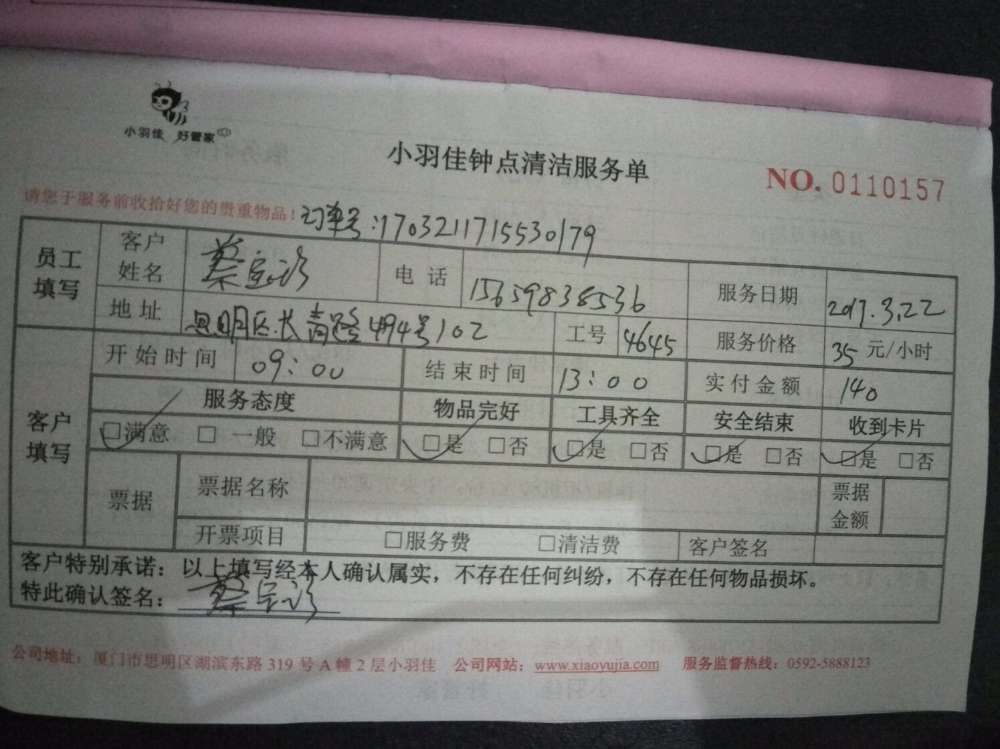 小羽佳 好管家
小羽佳钟点清洁服务单
NO. 0110157
请您于服务前收拾好您的贵重物品！订单号:1703211715530179
员工填写 客户姓名 蔡宝珍 电话 15659838536 服务日期 2017.3.22
地址 思明区长青路494号102 工号 4645 服务价格 35 元/小时
客户填写 开始时间 09:00 结束时间 13:00 实付金额 140
服务态度 物品完好 工具齐全 安全结束 收到卡片
☑满意 □一般 □不满意 ☑是 □否 ☑是 □否 ☑是 □否 ☑是 □否
票据 票据名称 票据金额
开票项目 □服务费 □清洁费 客户签名
客户特别承诺：以上填写经本人确认属实，不存在任何纠纷，不存在任何物品损坏。
特此确认签名：蔡宝珍
公司地址：厦门市思明区湖滨东路 319 号 A 幢 2 层小羽佳 公司网站：www.xiaoyujia.com 服务监督热线：0592-5888123